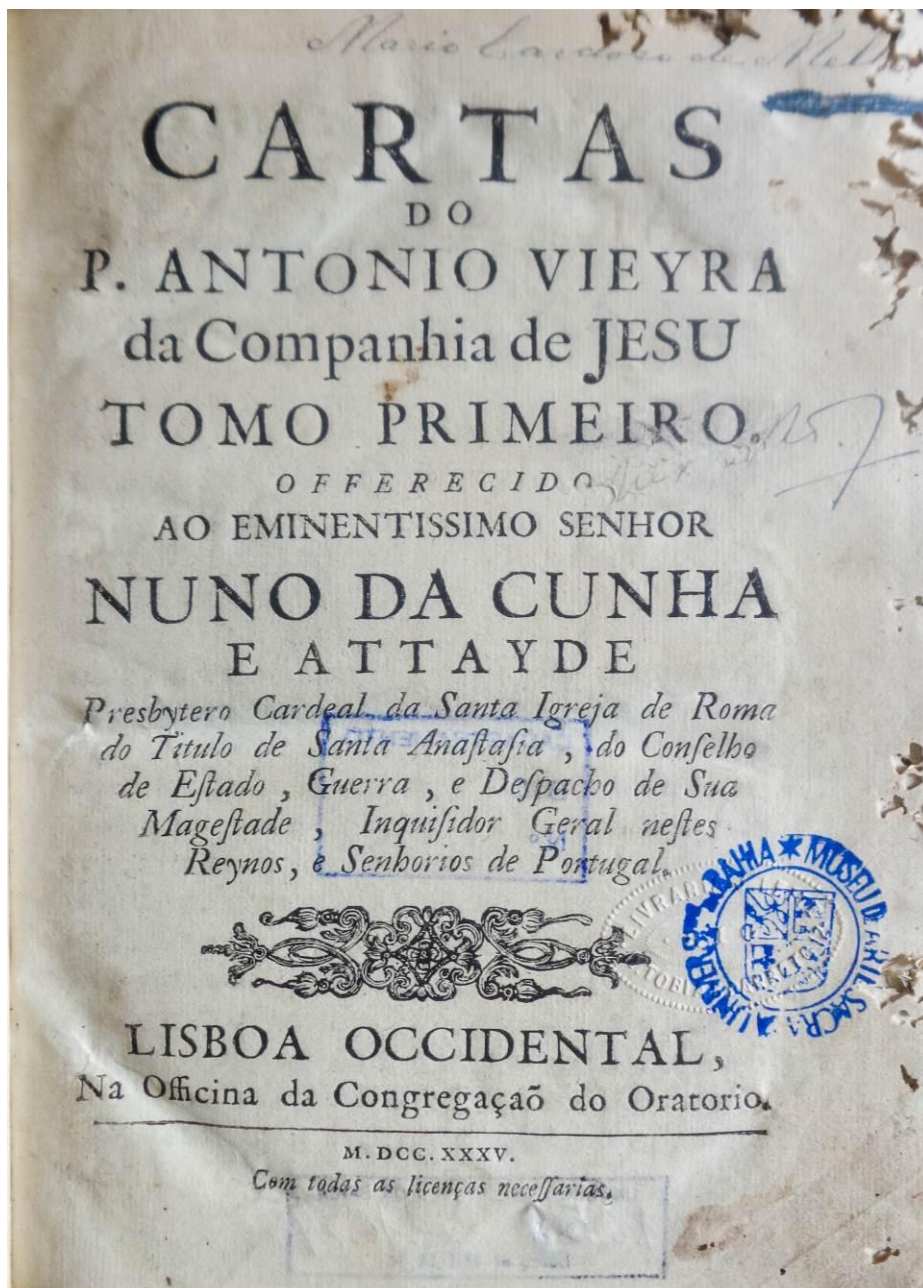 Mario Cardoso de Mello
CARTAS
DO
P. ANTONIO VIEYRA
da Companhia de JESU
TOMO PRIMEIRO.
OFFERECIDO
AO EMINENTISSIMO SENHOR
NUNO DA CUNHA
E ATTAYDE
Presbytero Cardeal da Santa Igreja de Roma
do Titulo de Santa Anaſtaſia, do Conſelho
de Eſtado, Guerra, e Deſpacho de Sua
Mageſtade, Inquiſidor Geral neſtes
Reynos, e Senhorios de Portugal.
UNIVERS. BAHIA * MUSEU DE ARTE SACRA
LIVRARIA
LISBOA OCCIDENTAL,
Na Officina da Congregaçaõ do Oratorio.
M. DCC. XXXV.
Com todas as licenças neceſſarias.